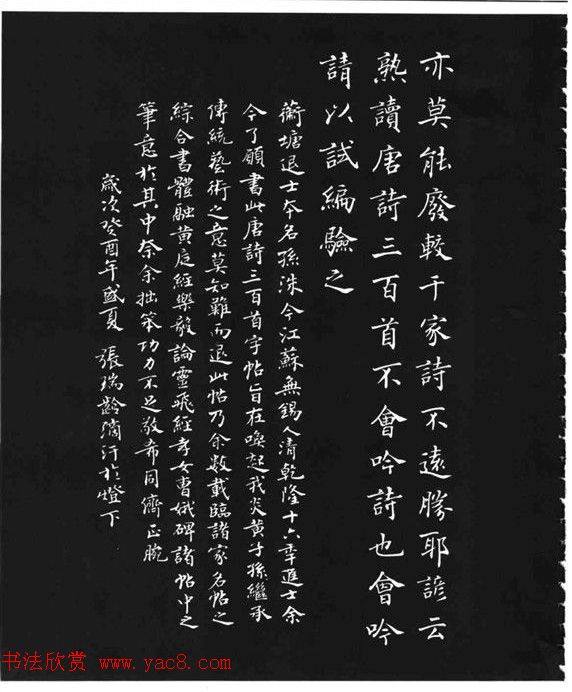 亦莫能廢較千家詩不遠勝耶諺云
熟讀唐詩三百首不會吟詩也會吟
請以試編驗之
蘅塘退士本名孫洙今江蘇無錫人清乾隆十六年進士余
今了願書此唐詩三百首字帖旨在喚起我炎黃子孫繼承
傳統藝術之意莫知難而退此帖乃余數載臨諸家名帖之
綜合書體融黃庭經樂毅論靈飛經孝女曹娥碑諸帖中之
筆意於其中奈余拙笨功力不足敬希同儕正腕
歲次癸酉年盛夏 張瑞齡 於燈下
书法欣赏 www.yac8.com